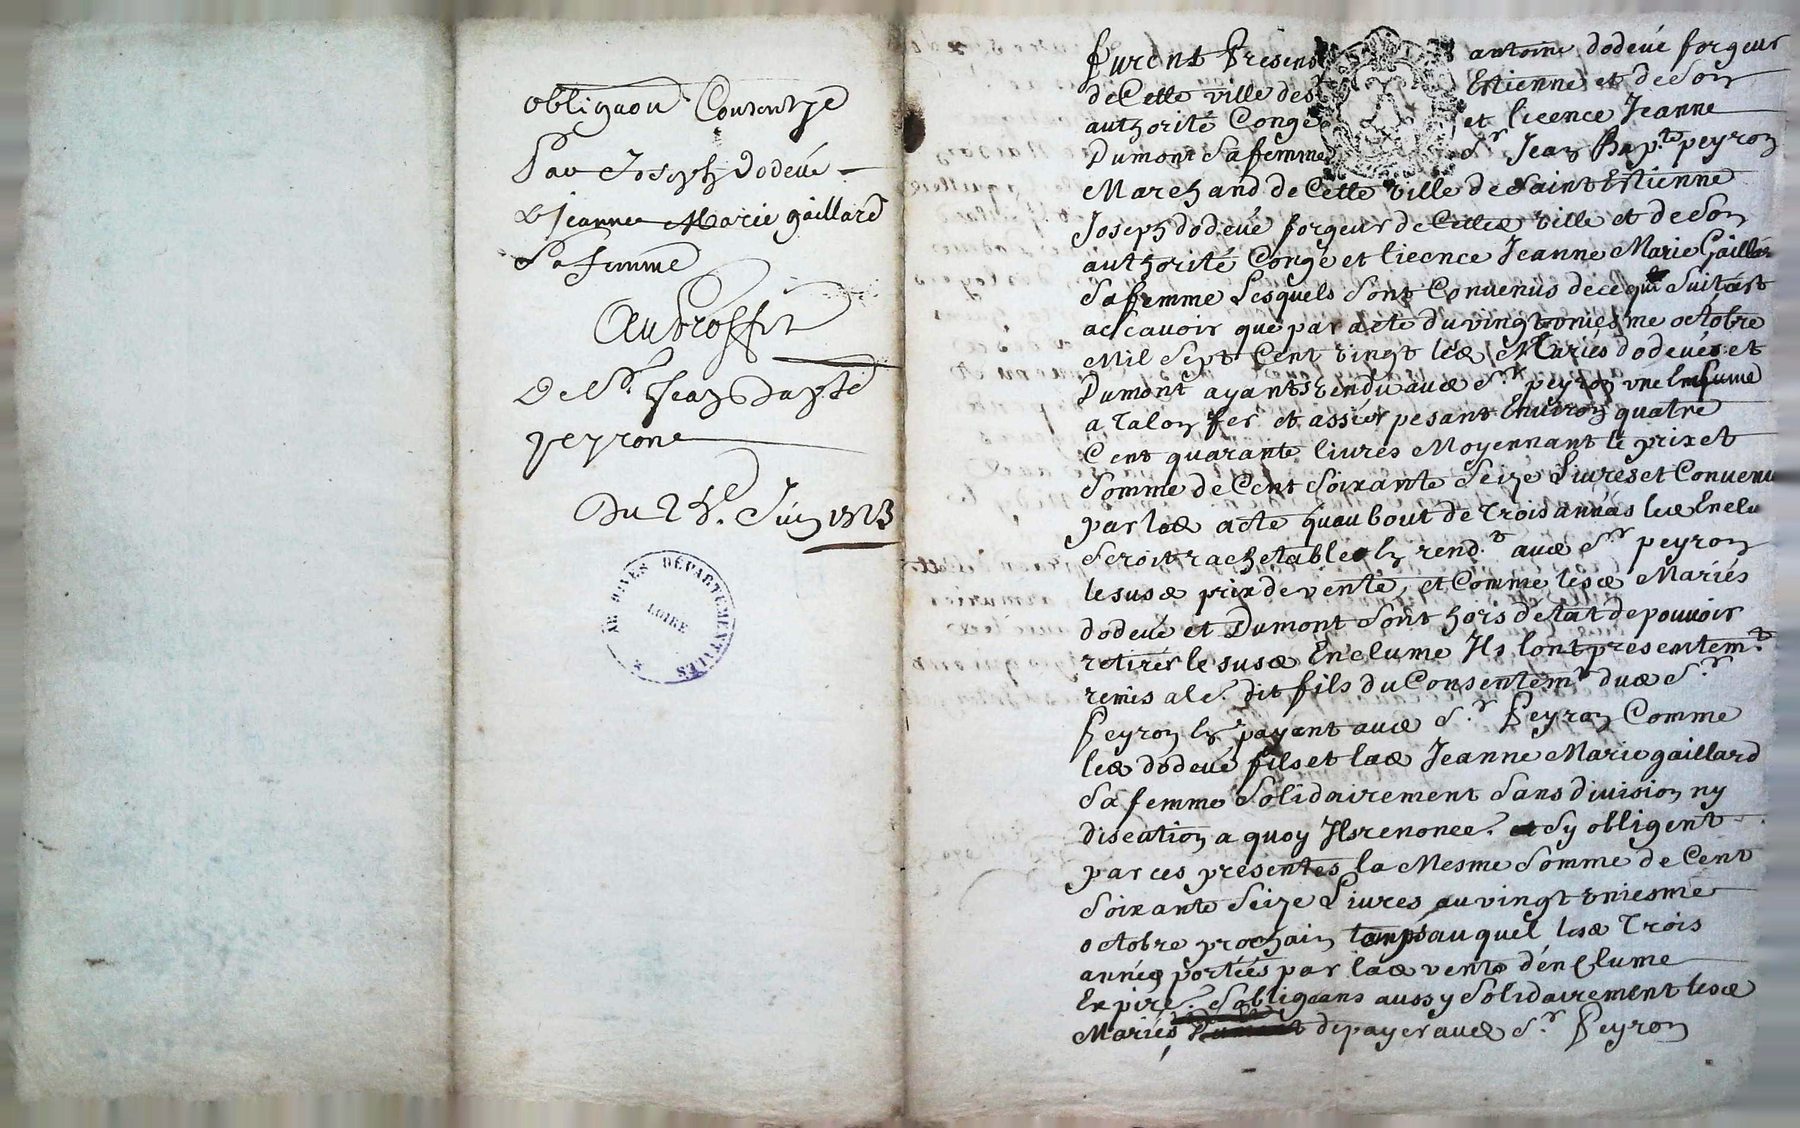 obligaon Consentye
Par Joseph dodevé
& Jeanne Marie gaillard
Sa femme
Au Proffit
De Sr. Jean Bapte
peyron
Du 25e. Juin 1723
ARCHIVES DÉPARTEMENTALES
LOIRE
Furent Presens antoine dodevé forgeur
de Cette ville de St Estienne et de Son
authorité Congé et licence Jeanne
Dumont Safemme Sr Jean Bap.te peyron
Marchand de Cette ville de Saint Estienne
Joseph dodevé forgeur de Cette ville et de Son
authorité Congé et licence Jeanne Marie Gaillar
Safemme Lesquels Sont Convenus de ce qui Suit
ascavoir que par acte du vingt uniesme octobre
Mil Sept Cent vingt les Mariés dodevés et
Dumont ayant vendu aud Sr peyron une Enclume
a Talon fer et assier pesant Environ quatre
Cent quarante livres Moyennant le prix et
Somme de Cent Soixante Seize Livres et Convenu
par led acte quau bout de Trois années lad Enclu
Seroit rachetable En rend.t aud Sr peyron
le susd prix de vente, et Comme lesd Mariés
dodevé et Dumont Sont hors détat de pouvoir
retirer le susd Enclume Ils lont presentem.t
remis a le.dit fils du Consentem.t dud S.r
Peyron En payant aud S.r Peyron Comme
led dodevé fils et lad Jeanne Marie gaillard
Sa femme Solidairement Sans division ny
discution a quoy Ils renonce. Sy obligent
par ces presentes la Mesme Somme de Cent
Soixante Seize Livres au vingt uniesme
octobre prochain temps auquel lesd Trois
années portées par lad vente dénclume
Expire. Sobligeans aussy Solidairement lesd
Mariés de payer aud S.r Peyron